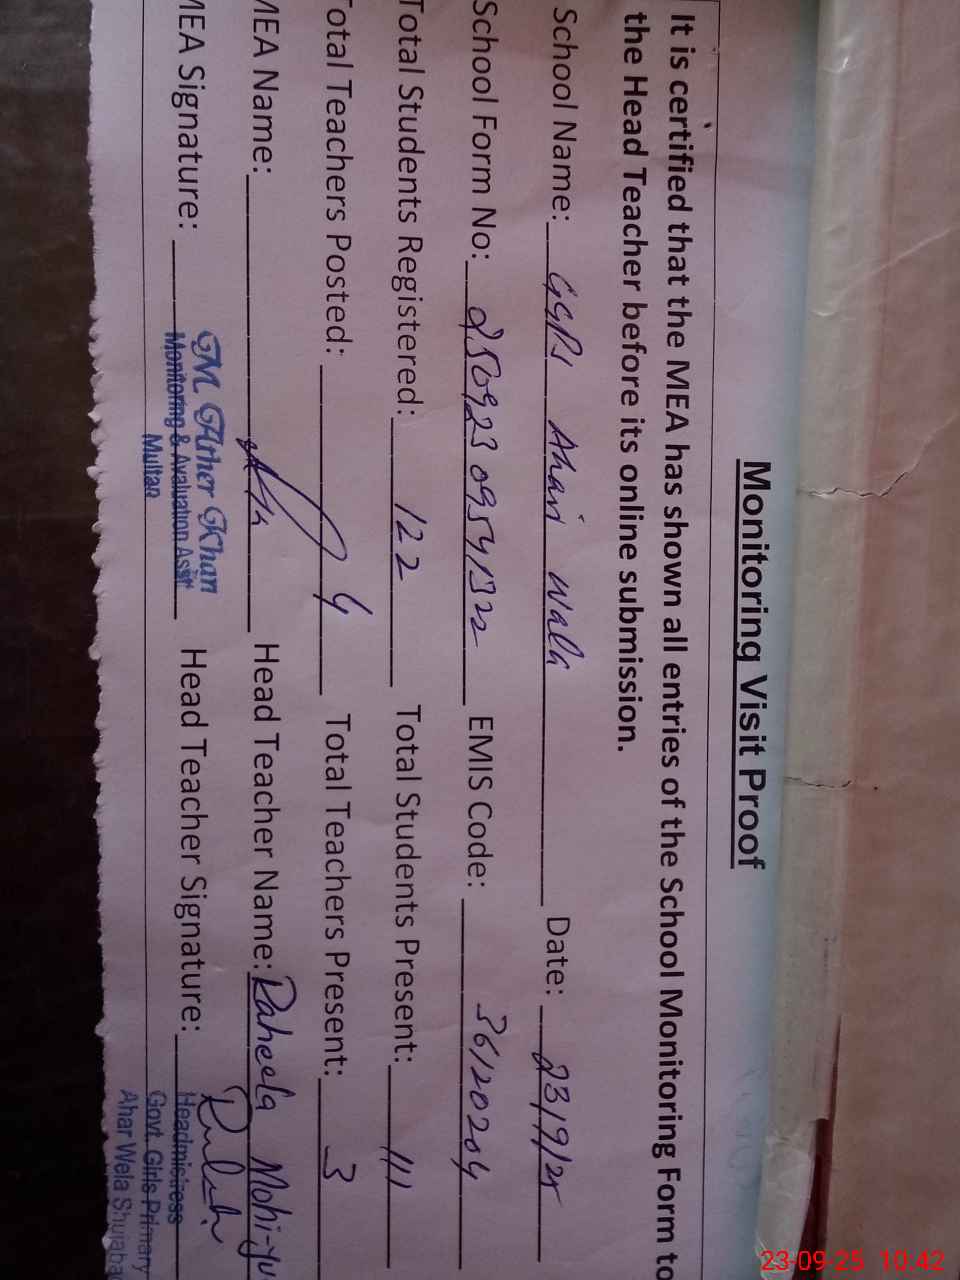 Monitoring Visit Proof
It is certified that the MEA has shown all entries of the School Monitoring Form to
the Head Teacher before its online submission.
School Name: GGPS Ahari Wala Date: 23/9/25
School Form No: 250923 0954 1322 EMIS Code: 36120204
Total Students Registered: 122 Total Students Present: 111
Total Teachers Posted: 4 Total Teachers Present: 3
MEA Name: Head Teacher Name: Raheela Mohi-yu
MEA Signature: Head Teacher Signature:
M Ather Khan
Monitoring & Avaluation Asstt
Multan
Headmistress
Govt. Girls Primary
Ahar Wela Shujaba
23-09-25 10:42